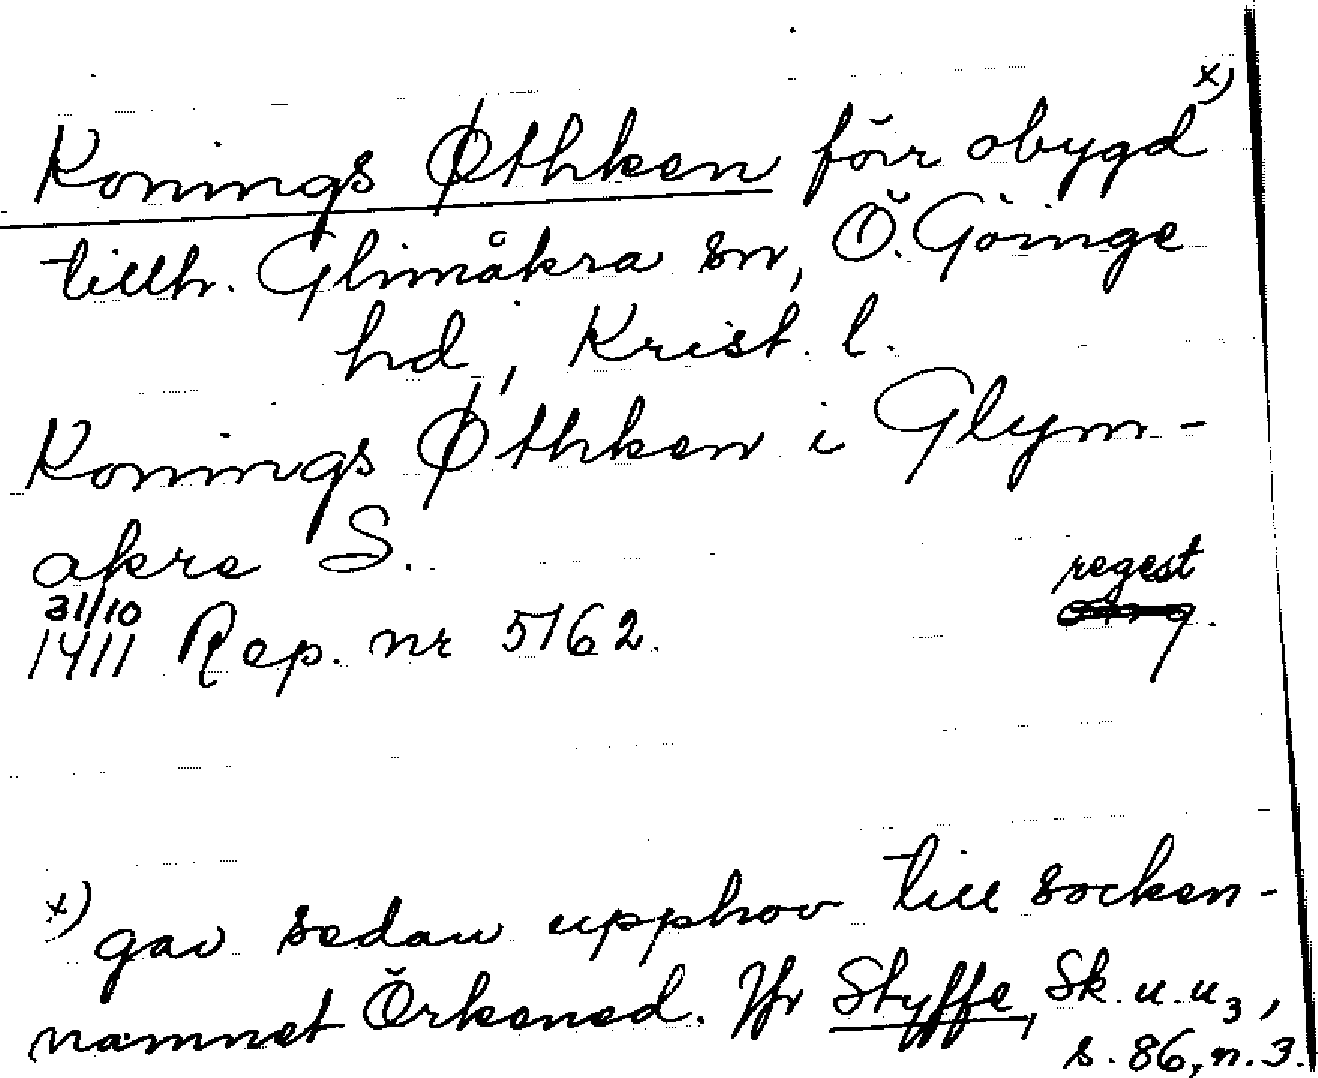 Konings Øthken för obygd x)
tillh. Glimåkra sn, Ö. Göinge
hd, Krist. l.
Konings Øthken i Glym-
akre S.
regest
31/10
1411 Rep. nr 5162.
x) gav sedan upphov till socken-
namnet Örkened. Jfr Styffe, Sk.u.u3,
s. 86, n. 3.